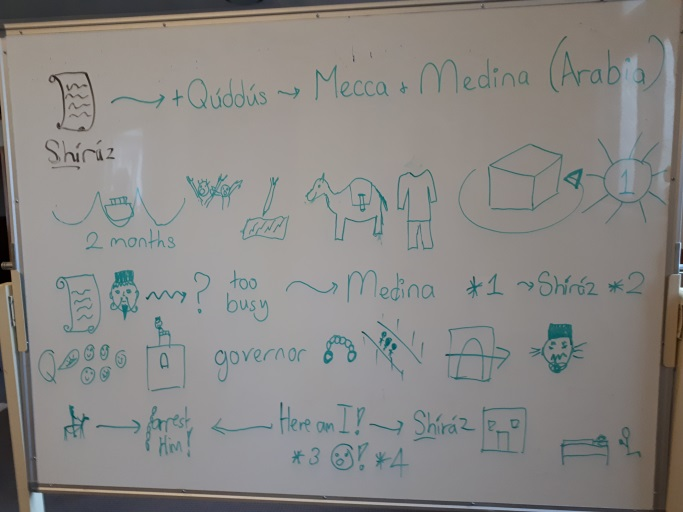 + Qúddús → Mecca + Medina (Arabia)
Shíráz
1
2 months
? too busy → Medina *1 → Shíráz *2
Q governor
Arrest Him! ← Here am I! → Shíráz
*3 ! *4